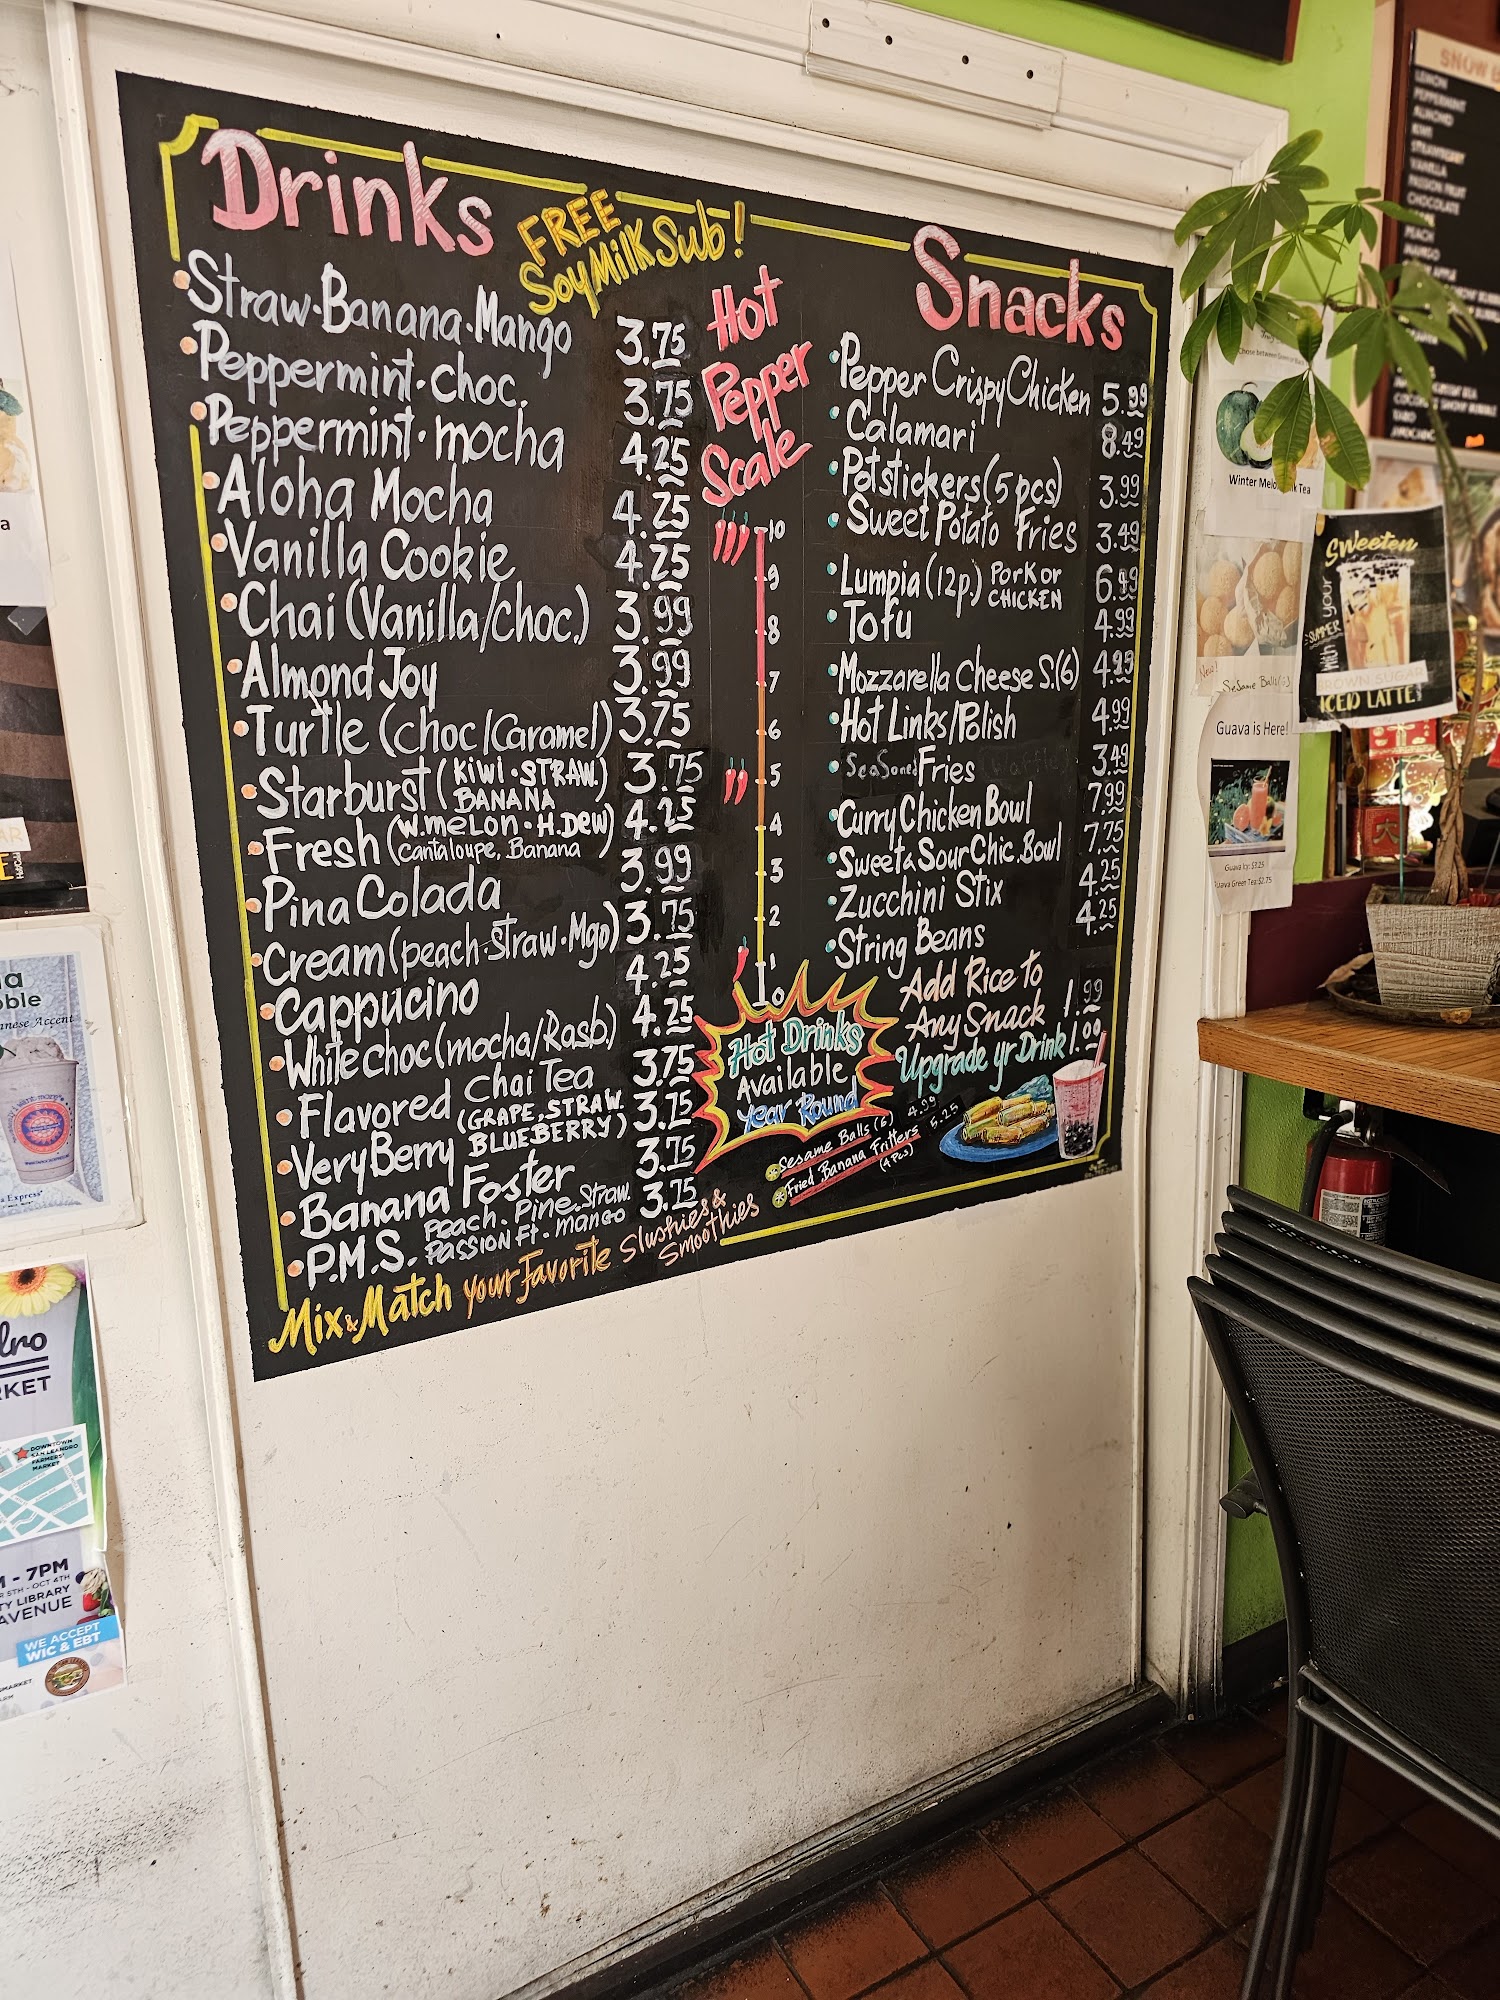 Drinks
FREE
Soy Milk Sub!
Straw·Banana·Mango 3.75
Peppermint·choc. 3.75
Peppermint·mocha 4.25
Aloha Mocha 4.25
Vanilla Cookie 4.25
Chai (Vanilla/choc.) 3.99
Almond Joy 3.99
Turtle (choc/Caramel) 3.75
Starburst (KIWI·STRAW. 3.75
BANANA)
Fresh (W.MELON·H.DEW) 4.25
Cantaloupe, Banana
Pina Colada 3.99
Cream (peach·straw·Mgo) 3.75
Cappucino 4.25
White choc (mocha/Rasb.) 4.25
Flavored Chai Tea 3.75
Very Berry (GRAPE, STRAW. 3.75
BLUEBERRY)
Banana Foster 3.75
P.M.S. Peach. Pine. Straw. 3.75
PASSION Ft. mango
Mix & Match your Favorite Slushies &
Smoothies
Hot
Pepper
Scale
10
9
8
7
6
5
4
3
2
1
0
Hot Drinks
Available
Year Round
Snacks
Pepper Crispy Chicken 5.99
Calamari 8.49
Potstickers (5 pcs) 3.99
Sweet Potato Fries 3.49
Lumpia (12p.) PORK OR 6.99
CHICKEN
Tofu 4.99
Mozzarella Cheese S.(6) 4.95
Hot Links/Polish 4.99
Seasoned Fries (Waffle) 3.49
Curry Chicken Bowl 7.99
Sweet & Sour Chic. Bowl 7.75
Zucchini Stix 4.25
String Beans 4.25
Add Rice to
Any Snack 1.99
Upgrade yr Drink 1.00
Sesame Balls (6) 4.99
Fried Banana Fritters 5.25
(4 pcs)
SNOW
LEMON
PEPPERMINT
ALMOND
KIWI
STRAWBERRY
VANILLA
PASSION FRUIT
CHOCOLATE
PEACH
MANGO
Winter Melon
Tea
New!
Sesame Balls
Sweeten
your
SUMMER
with
BROWN SUGAR
ICED LATTE
Guava is Here!
Guava Green Tea: $2.75
Express
MARKET
DOWNTOWN
SAN LEANDRO
FARMERS'
MARKET
- 7PM
5TH - OCT 4TH
LIBRARY
AVENUE
WE ACCEPT
WIC & EBT